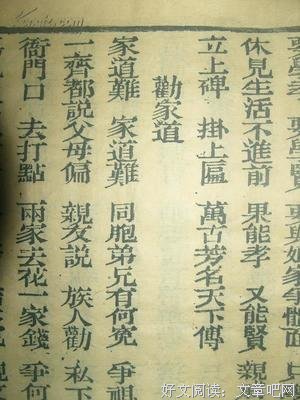 休見生活不進前 果能孝 又能賢 親
立上碑 掛上匾 萬古芳名天下傳
勸家道
家道難 家道難 同胞弟兄有何冤 爭
一齊都説父母偏 親友説 族人勸 私下
衙門口 去打點 兩家去花一家錢 爭何
好文阅读：文章吧网